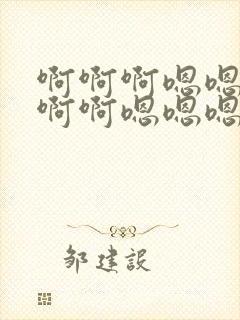 啊啊啊嗯嗯
啊啊嗯嗯嗯
邹建设